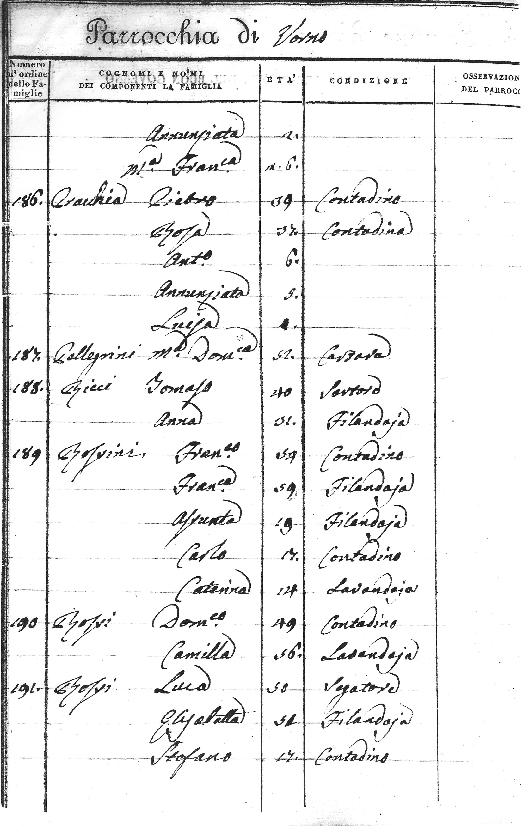 Parrocchia di Vorno
Numero d'ordine dello Famiglie
COGNOMI E NOMI DEI COMPONENTI LA FAMIGLIA
ETA'
CONDIZIONE
OSSERVAZION DEL PARROCO
Annunziata 2.
Mª Franca 6.
186. Pietro 39 Contadino
Rosa 37. Contadina
Anto 6.
Annunziata 5.
Luisa
187. Pellegrini Mª Domca 52.
188. Ricci Tomaso 40 Sartore
Anna 32. Filandaja
189 Rossini Franco 59 Contadino
Franca 59. Filandaja
Assunta 19 Filandaja
Carlo 17. Contadino
Caterina 24 Lavandaja
190 Rossi Domco 49 Contadino
Camilla 56. Lavandaja
191. Rossi Luca 50 Segatore
Elisabetta 52 Filandaja
Stefano 17. Contadino